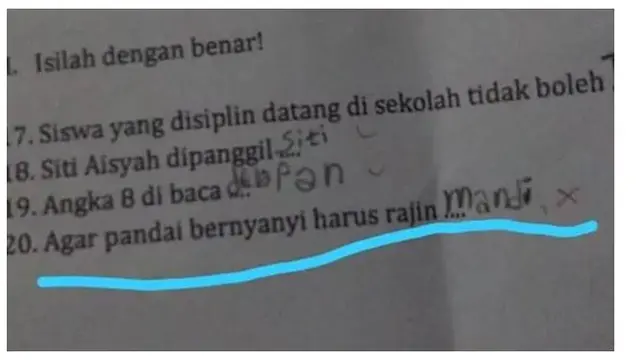 I. Isilah dengan benar!
17. Siswa yang disiplin datang di sekolah tidak boleh
18. Siti Aisyah dipanggil siti
19. Angka 8 di baca delapan
20. Agar pandai bernyanyi harus rajin mandi.